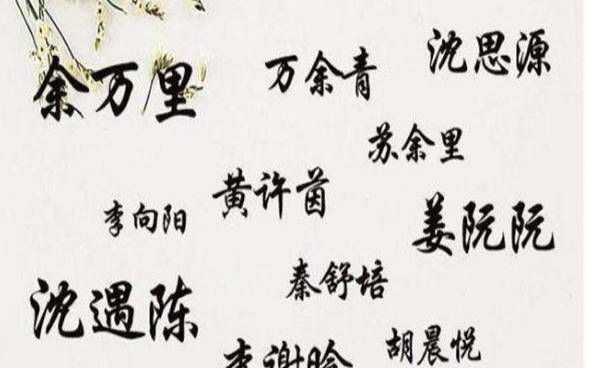 沈思源
余万里
万余青
苏余里
黄许茵
李向阳
姜阮阮
秦舒培
沈遇陈
胡晨悦